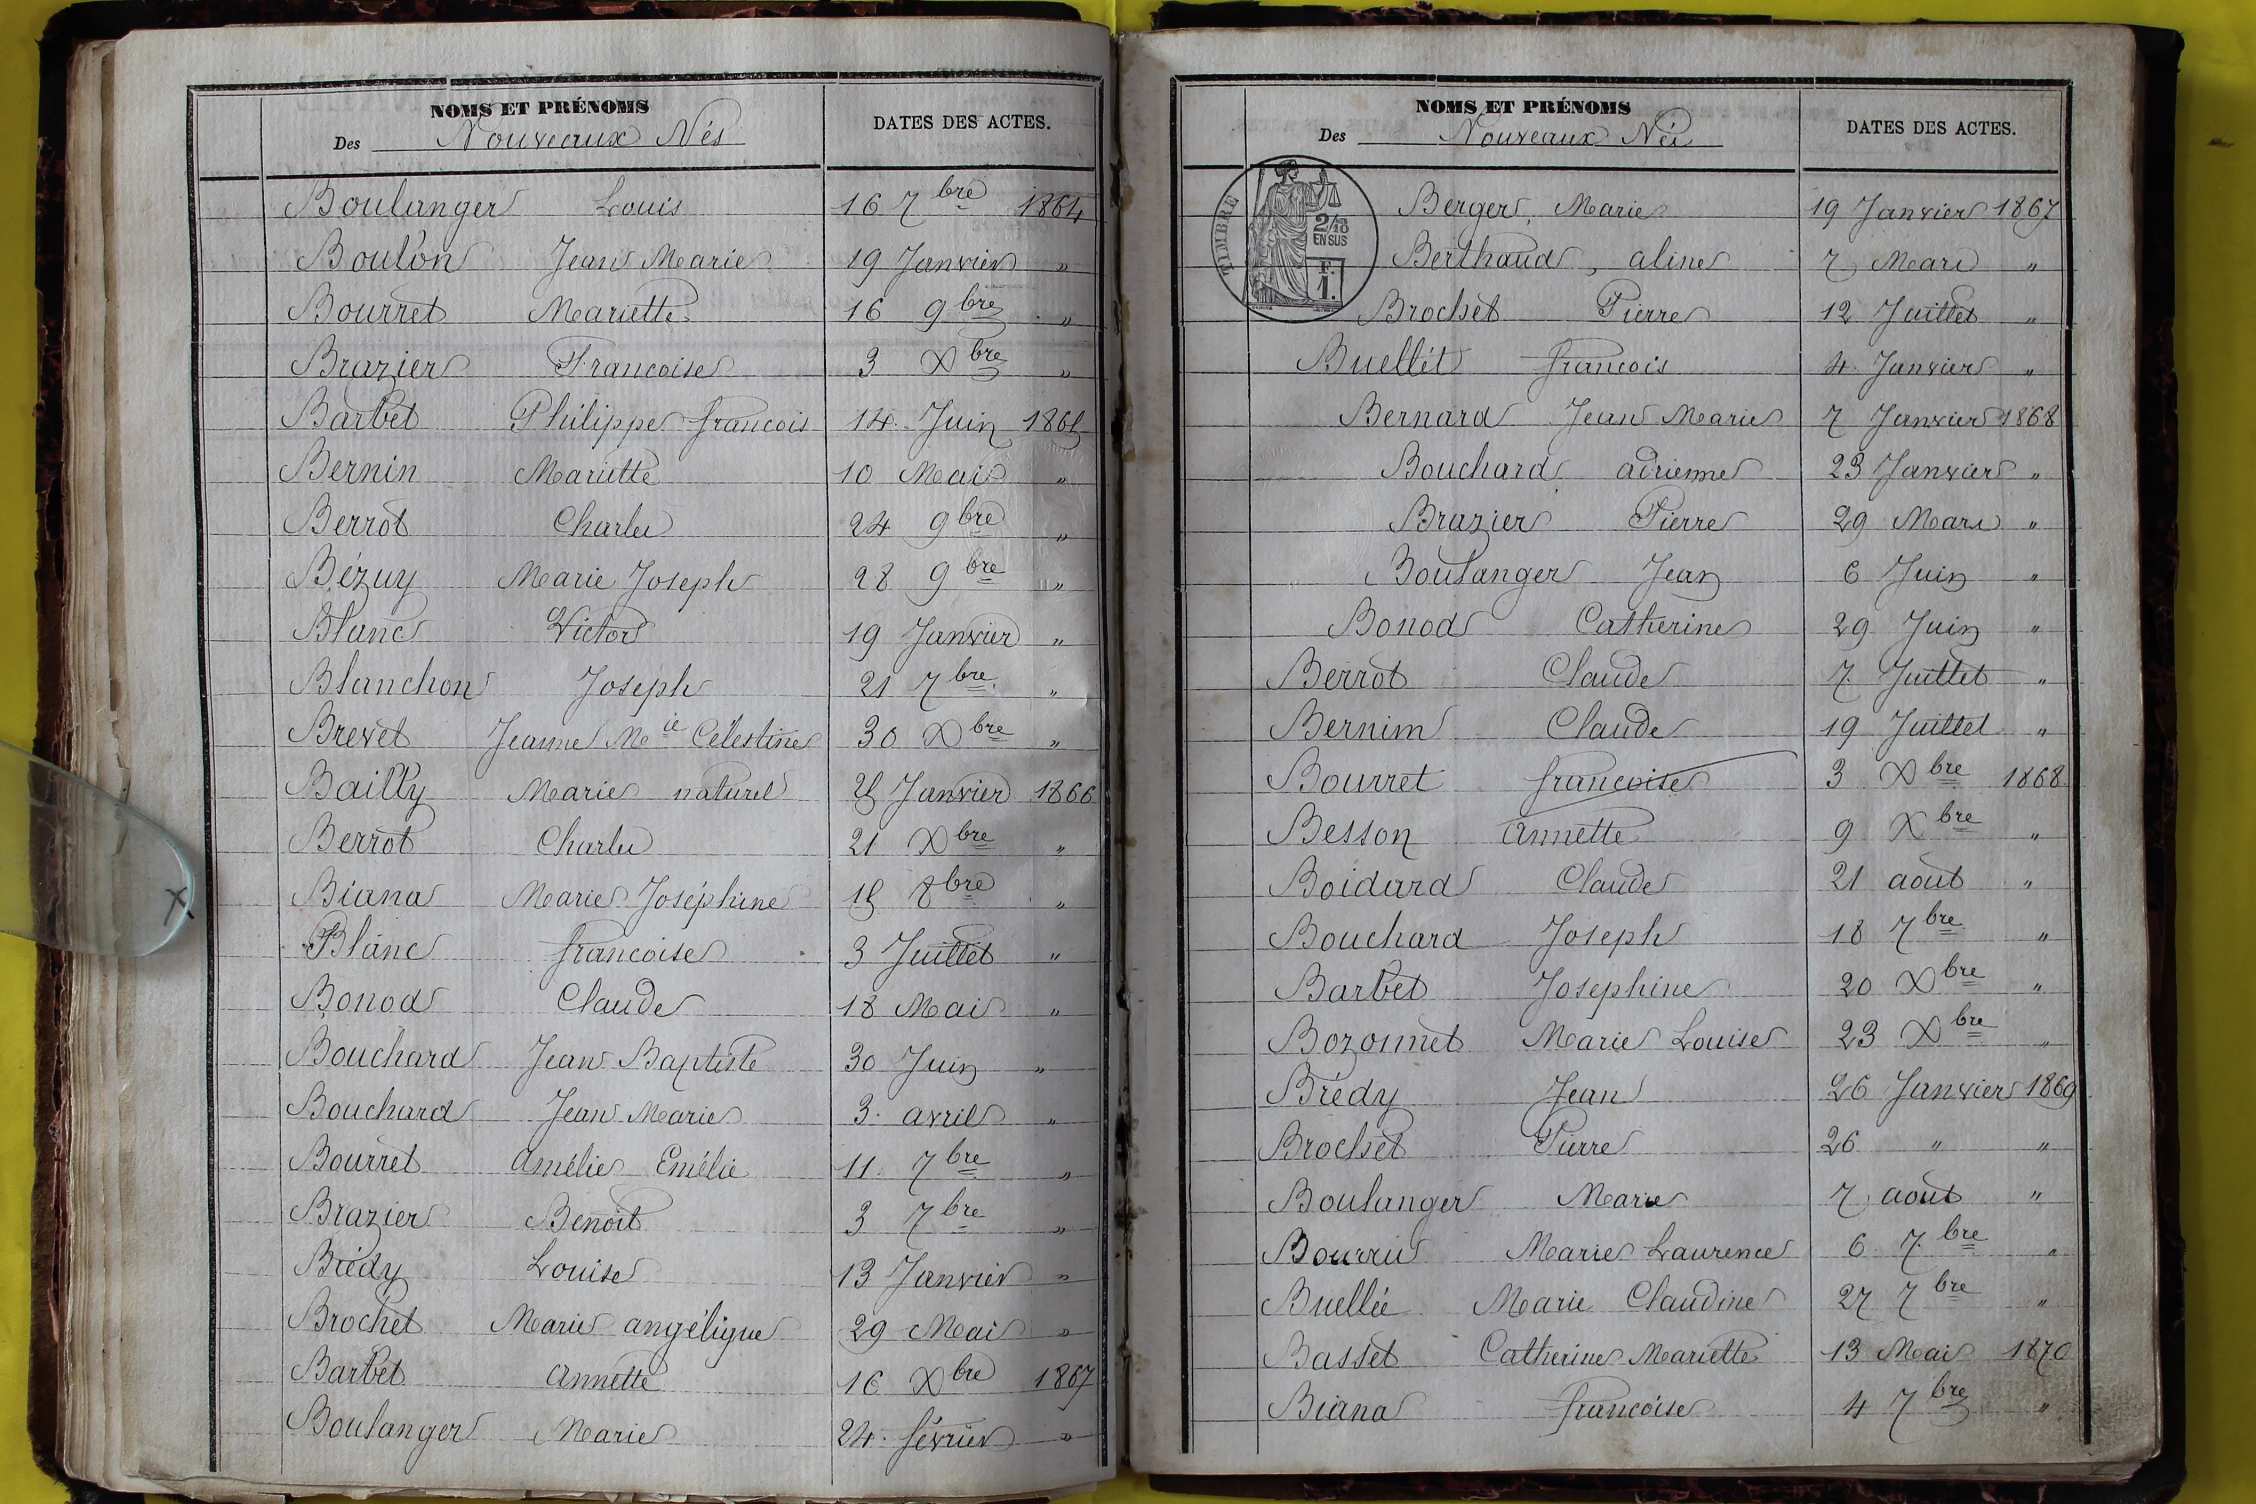 NOMS ET PRÉNOMS
Des Nouveaux Nés
DATES DES ACTES.
Boulanger Louis 16 7bre 1864
Boulon Jean Marie 19 Janvier "
Bourret Mariette 16 9bre "
Brazier Francoise 3 Xbre "
Barbet Philippe francois 14 Juin 1865
Bernin Mariette 10 Mai "
Berrot Charles 24 9bre "
Bézuy Marie Joseph 28 9bre "
Blanc Victor 19 Janvier "
Blanchon Joseph 21 7bre "
Brevet Jeanne Mie Célestine 30 Xbre "
Bailly Marie naturel 25 Janvier 1866
Berrot Charles 21 Xbre "
Biana Marie Joséphine 15 8bre "
Blanc francoise 3 Juillet "
Bonod Claude 18 Mai "
Bouchard Jean Baptiste 30 Juin "
Bouchard Jean Marie 3 avril "
Bourret Amélie Emélie 11 7bre "
Brazier Benoit 3 7bre "
Brédy Louise 13 Janvier "
Brochet Marie angélique 29 Mai "
Barbet Annette 16 Xbre 1867
Boulanger Marie 24 février "
NOMS ET PRÉNOMS
Des Nouveaux Nés
DATES DES ACTES.
TIMBRE
2/10
EN SUS
F.
1.
Berger, Marie 19 Janvier 1867
Berthaud, aline 7 Mars "
Brochet Pierre 12 Juillet "
Buellet francois 4 Janvier "
Bernard Jean Marie 7 Janvier 1868
Bouchard adrienne 23 Janvier "
Brazier Pierre 29 Mars "
Boulanger Jean 6 Juin "
Bonod Catherine 29 Juin "
Berrot Claude 7 Juillet "
Bernim Claude 19 Juillet "
Bourret francoise 3 Xbre 1868
Besson Annette 9 Xbre "
Boidard Claude 21 aout "
Bouchard Joseph 18 7bre "
Barbet Josephine 20 Xbre "
Bozonnet Marie Louise 23 Xbre "
Brédy Jean 26 Janvier 1869
Brochet Pierre 26 " "
Boulanger Marie 7 aout "
Marie Laurence 6 7bre "
Marie Claudine 27 7bre "
Basset Catherine Mariette 13 Mai 1870
Biana francoise 4 7bre "